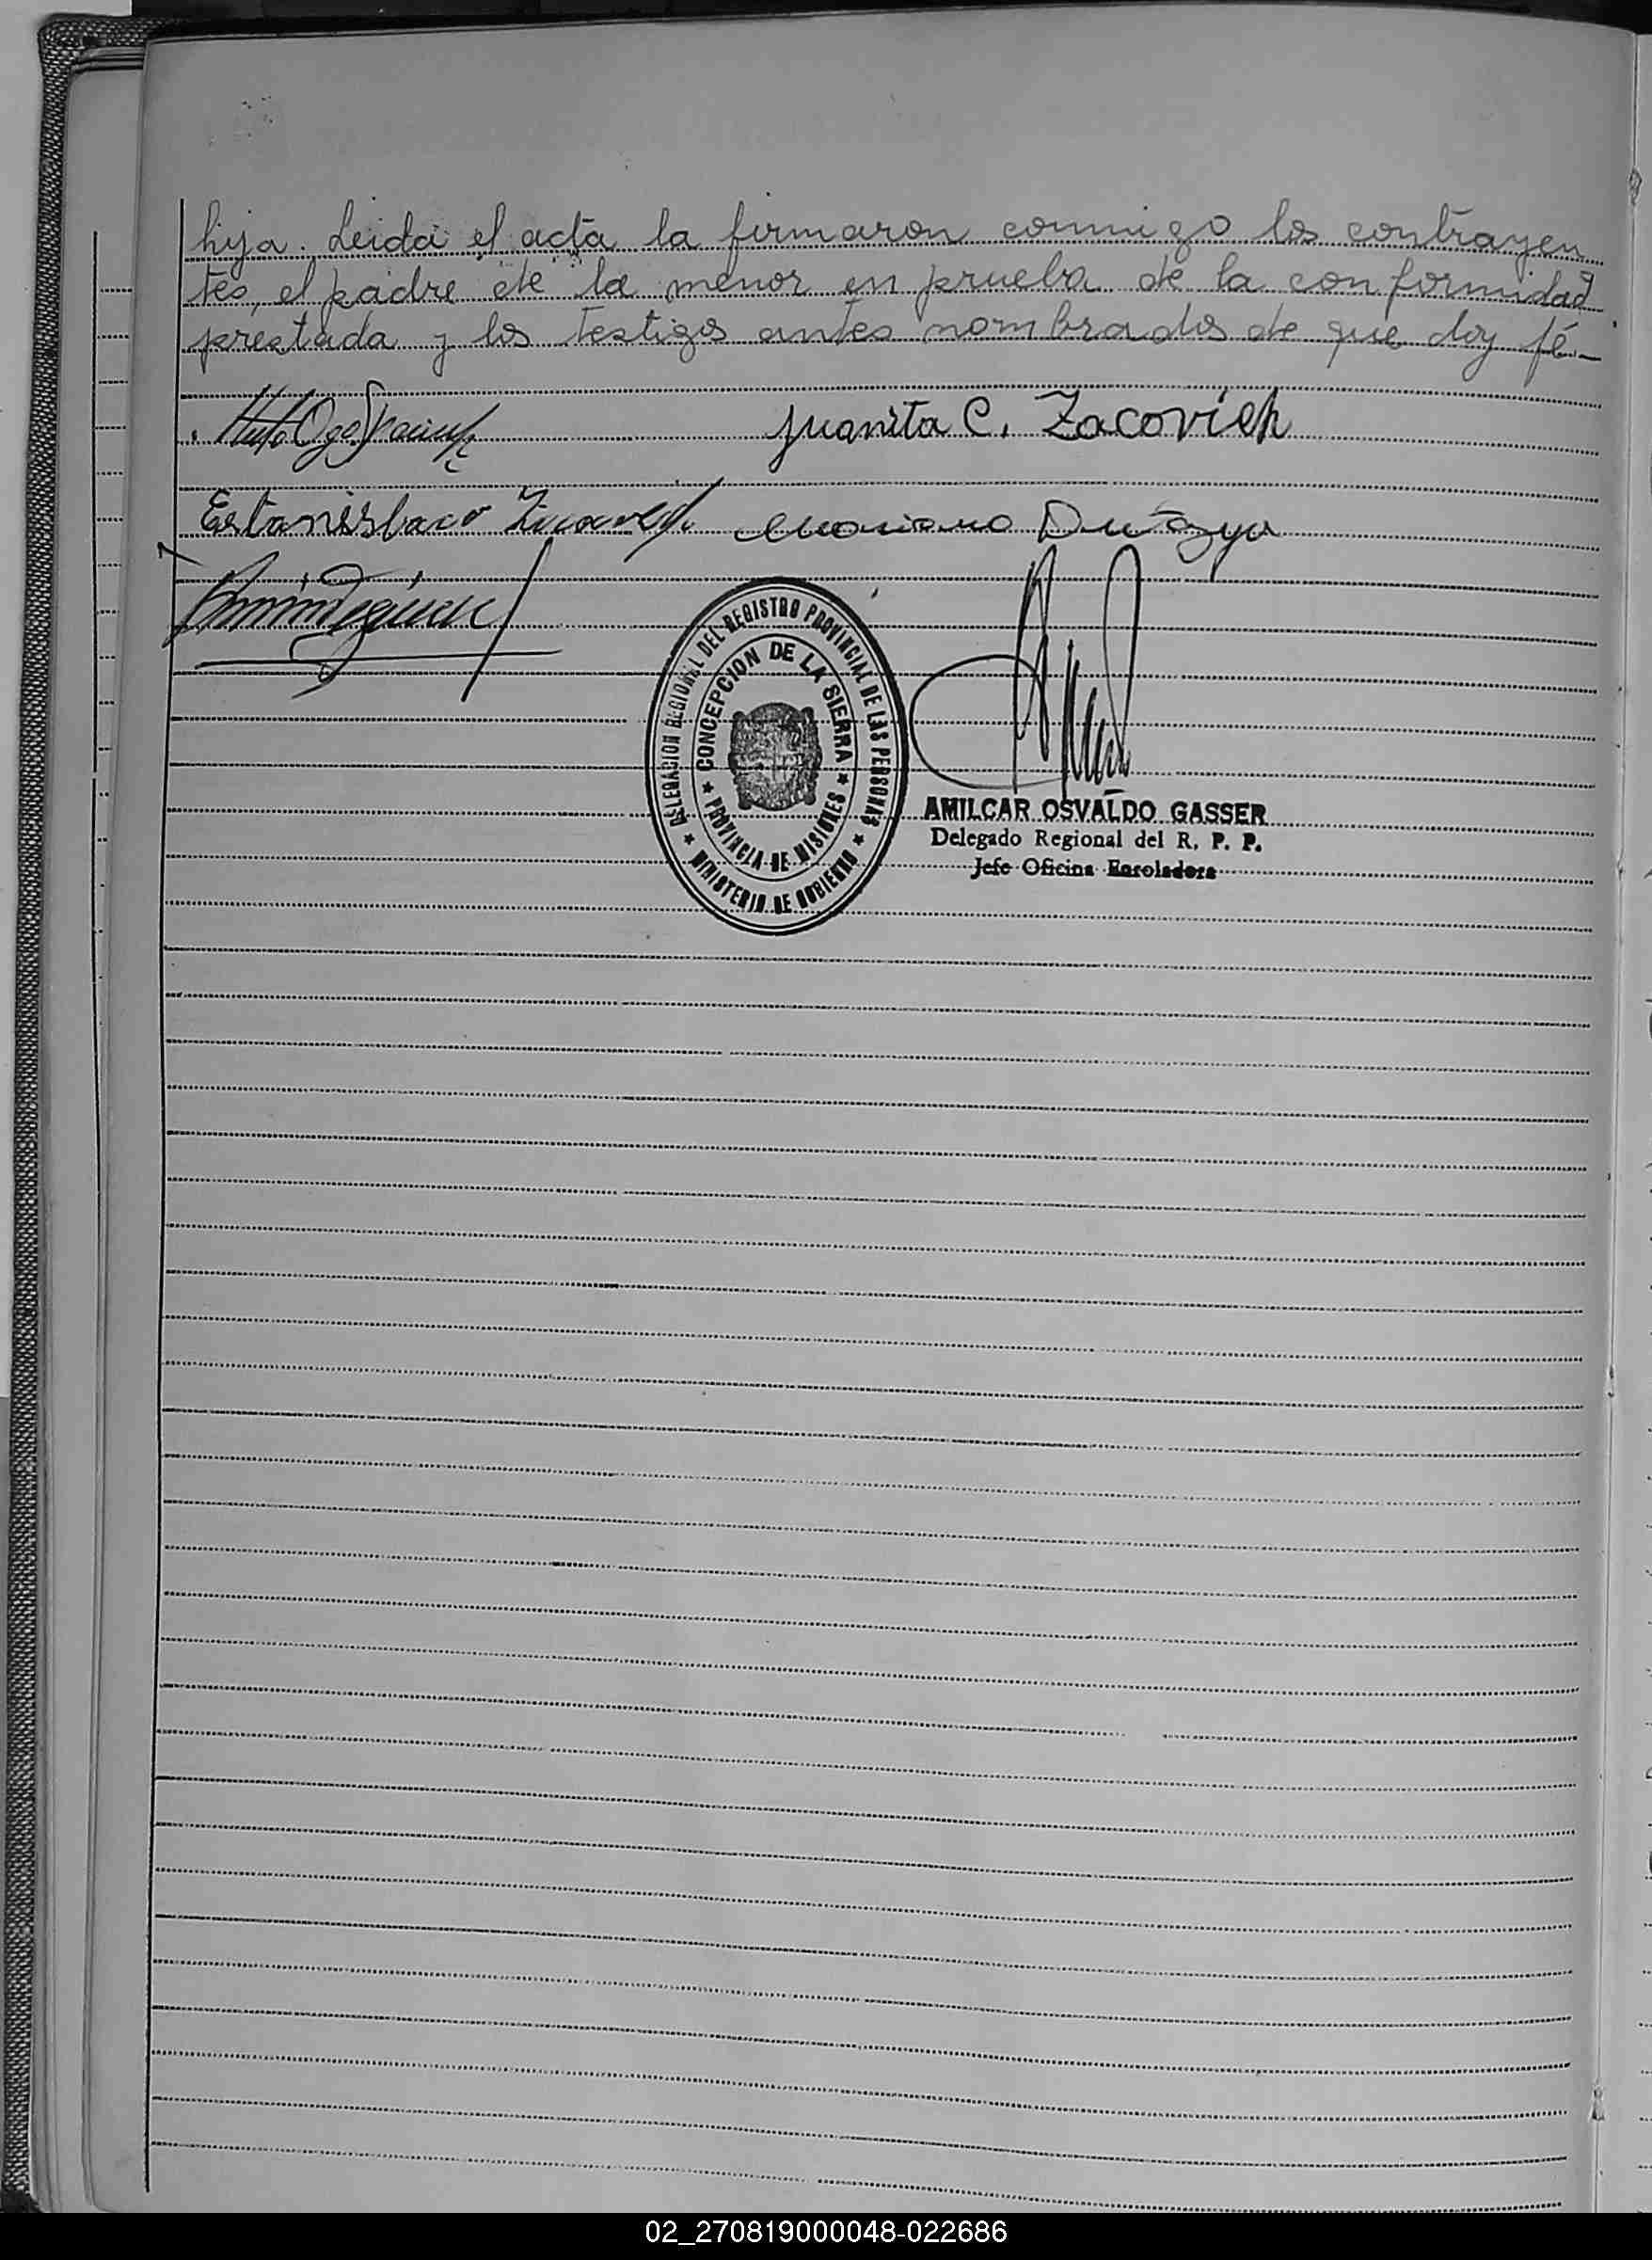 hija. Leida el acta la firmaron conmigo los contrayen
tes, el padre de la menor en prueba de la conformidad
prestada y los testigos antes nombrados de que doy fé.-
Juanita C. Zacovich
Estanislaco
DELEGACION REGIONAL DEL REGISTRO PROVINCIAL DE LAS PERSONAS
CONCEPCION DE LA SIERRA
PROVINCIA DE MISIONES
MINISTERIO DE GOBIERNO
AMILCAR OSVALDO GASSER
Delegado Regional del R. P. P.
Jefe Oficina Enroladora
02_270819000048-022686